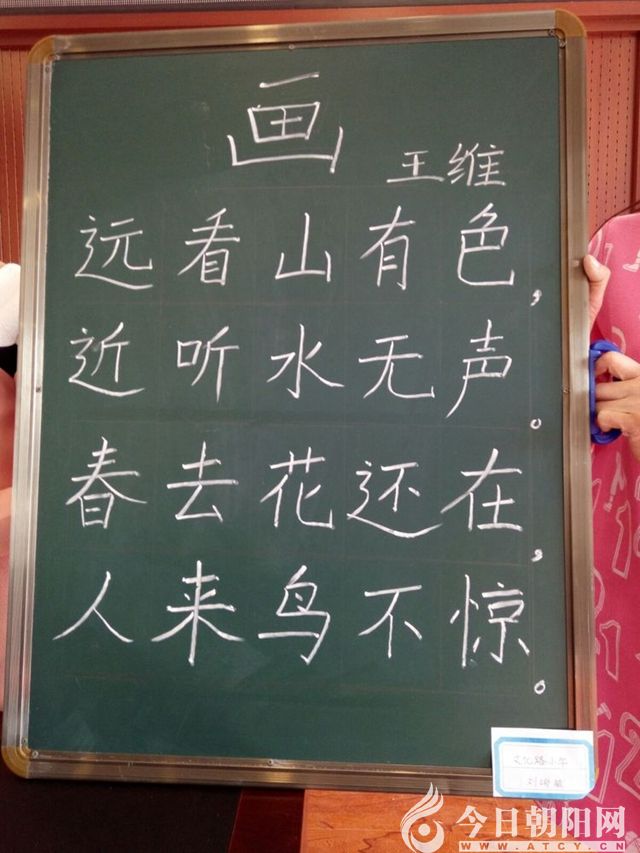 画
王维
远看山有色,
近听水无声。
春去花还在,
人来鸟不惊。
文化路小学
今日朝阳网
WWW.ATCY.CN